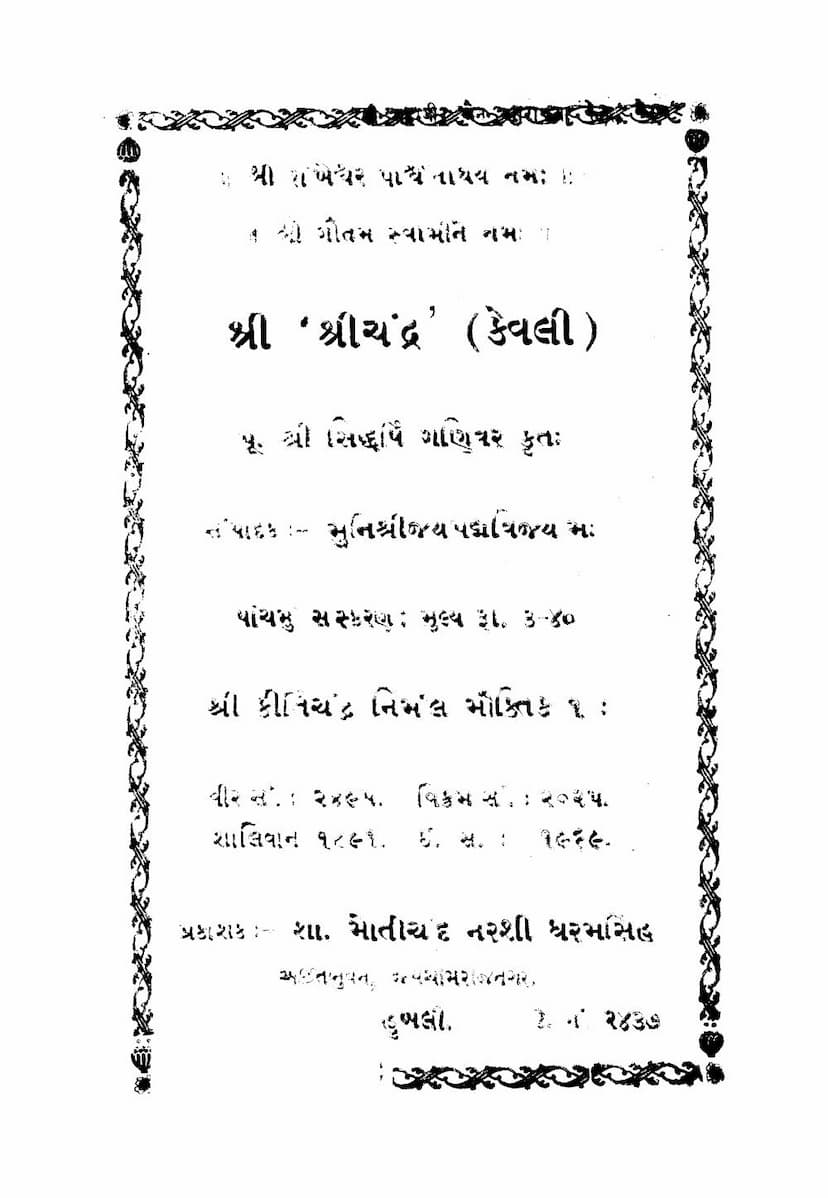 ॥ શ્રી શંખેશ્વર પાર્શ્વનાથાય નમઃ ॥
શ્રી ગૌતમ સ્વામીને નમઃ
શ્રી ‘શ્રીચંદ્ર’ (કેવલી)
પૂ. શ્રી સિદ્ધર્ષિ ગણિવર કૃતઃ
સંપાદકઃ– મુનિશ્રીજયપદ્મવિજય મઃ
પાંચમુ સંસ્કરણ : મુલ્ય રૂા. ૩-૪૦
શ્રી કીર્તિચંદ્ર નિર્મલ મૌક્તિક ૧ :
વીર સં. : ૨૪૯૫. વિક્રમ સં. : ૨૦૨૫.
શાલિવાન ૧૮૯૧. ઈ. સ. : ૧૯૬૯.
પ્રકાશક :– શા. મોતીચંદ નરશી ધરમસિંહ
હુબલી. ટે. નં. ૨૪૩૭